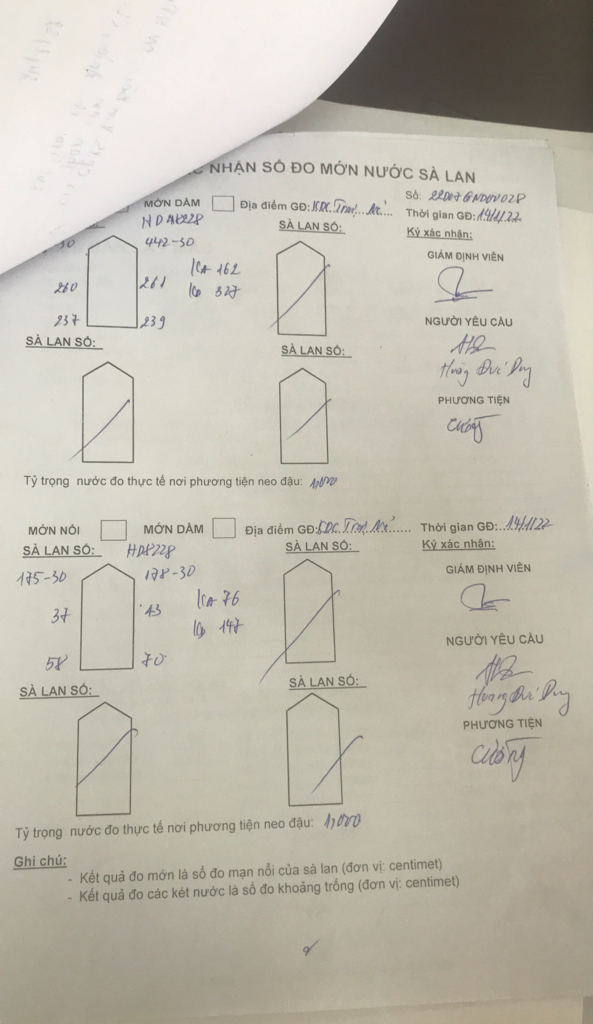 NHẬN SỐ ĐO MỚN NƯỚC SÀ LAN
MỚN DÀM Địa điểm GĐ: KDC Trại
Số: 22D07GNĐN028
Thời gian GĐ: 14/1/22
Ký xác nhận:
SÀ LAN SỐ:
442-30
260 261
237 239
162
327
GIÁM ĐỊNH VIÊN
NGƯỜI YÊU CẦU
Hoàng Đức Duy
PHƯƠNG TIỆN
Cường
SÀ LAN SỐ: SÀ LAN SỐ:
Tỷ trọng nước đo thực tế nơi phương tiện neo đậu: 1,000
MỚN NỔI MỚN DÀM Địa điểm GĐ: KDC Trại
Thời gian GĐ: 14/1/22
Ký xác nhận:
SÀ LAN SỐ: HD8228 SÀ LAN SỐ:
175-30 178-30
37 43
58 70
76
147
GIÁM ĐỊNH VIÊN
NGƯỜI YÊU CẦU
Hoàng Đức Duy
PHƯƠNG TIỆN
Cường
SÀ LAN SỐ: SÀ LAN SỐ:
Tỷ trọng nước đo thực tế nơi phương tiện neo đậu: 1,000
Ghi chú:
- Kết quả đo mớn là số đo mạn nổi của sà lan (đơn vị: centimet)
- Kết quả đo các két nước là số đo khoảng trống (đơn vị: centimet)